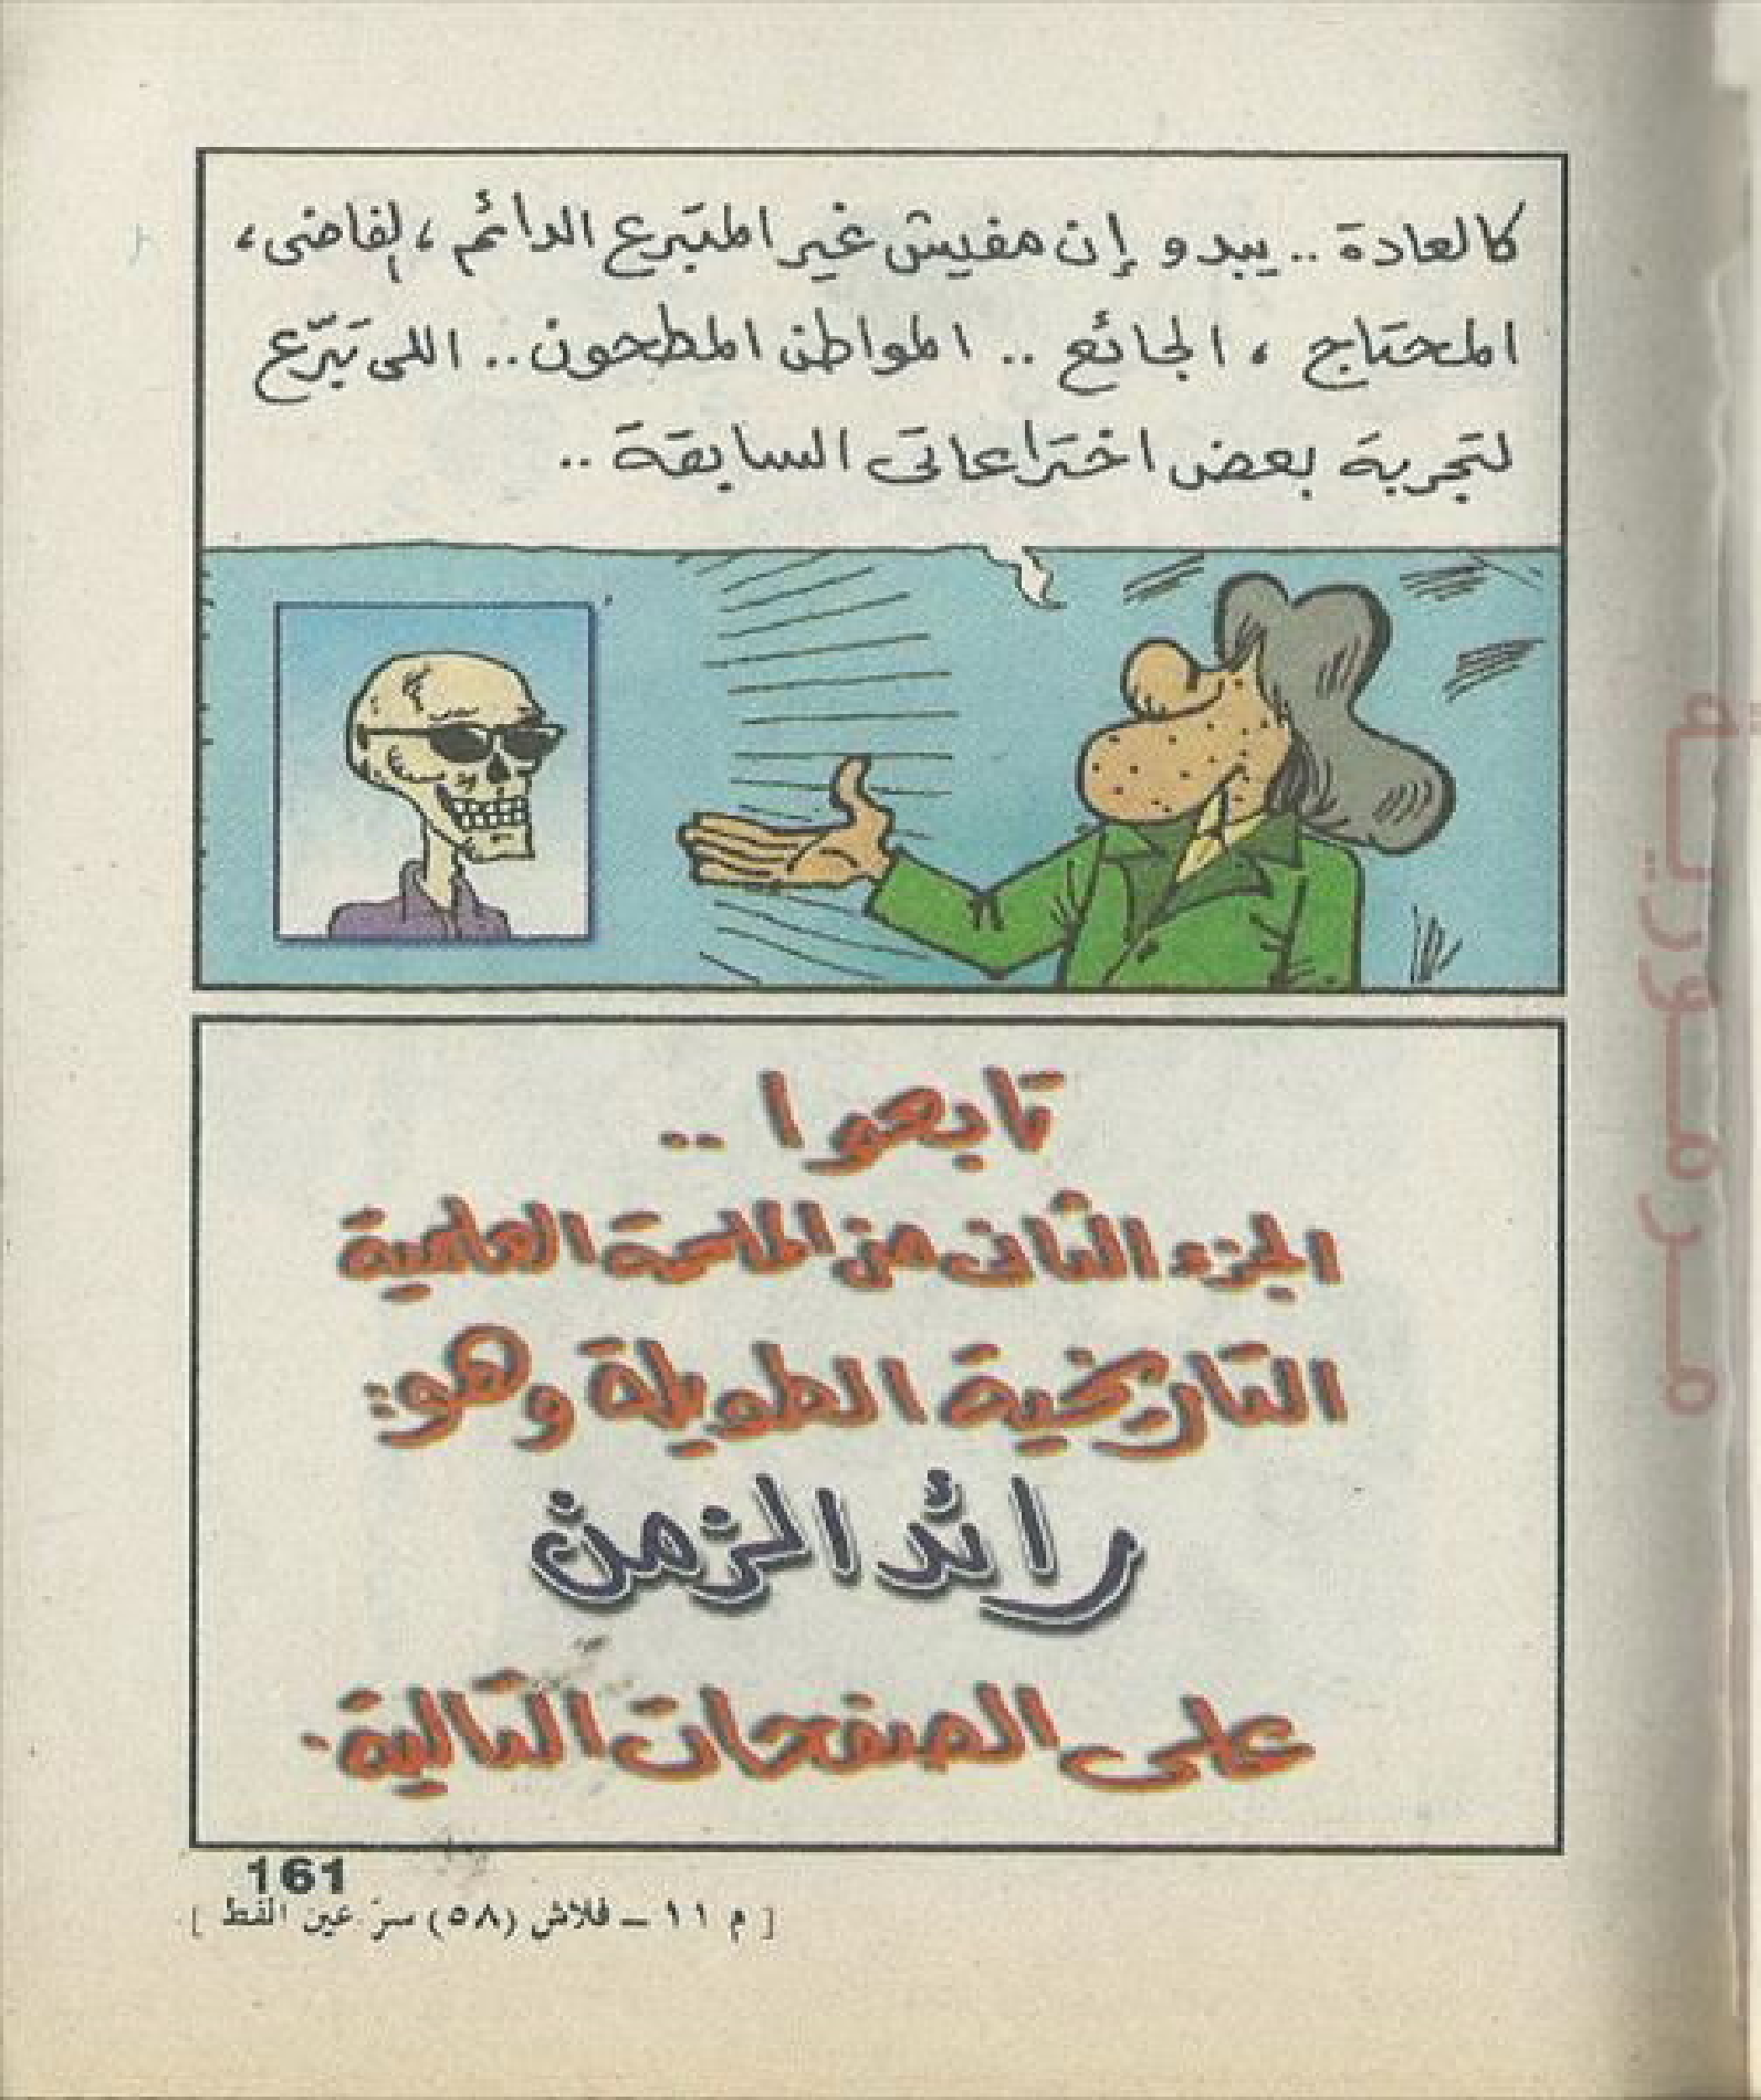 كالعادة .. يبدو إن مفيش غير المتبرع الدائم ، الفاضى ،
المحتاج ، الجائع .. المواطن المطحون .. اللى تبرّع
لتجربة بعض اختراعاتى السابقة ..
تابعوا ..
الجزء الثانى من الملحمة العلمية
التاريخية الطويلة وهو :
رائد الزمن
على الصفحات التالية .
161
[ م ١١ – فلاش (٥٨) سرّ عين القط ]